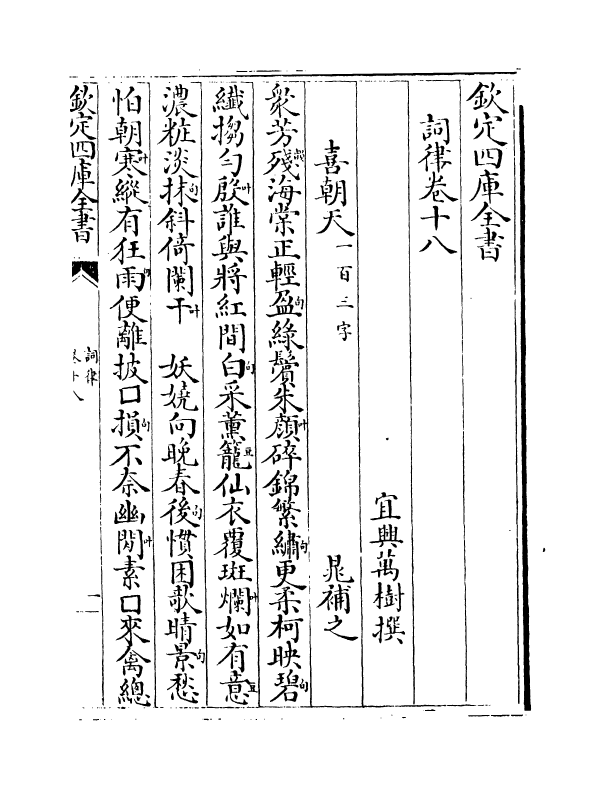 欽定四庫全書
詞律卷十八
宜興萬樹撰
喜朝天一百三字 晁補之
衆芳殘起韻海棠正輕盈句綠鬢朱顔叶碎錦繁繡句更柔柯映碧句
纖搊勻殷叶誰與將紅間白句采薰籠豆仙衣覆斑爛叶如有意豆
濃粧淡抹句斜倚闌干叶 妖嬈向晚春後句慣困欹晴景句愁
怕朝寒叶縱有狂雨句便離披口損句不奈幽閒叶素口來禽總
欽定四庫全書
詞律
卷十八
一